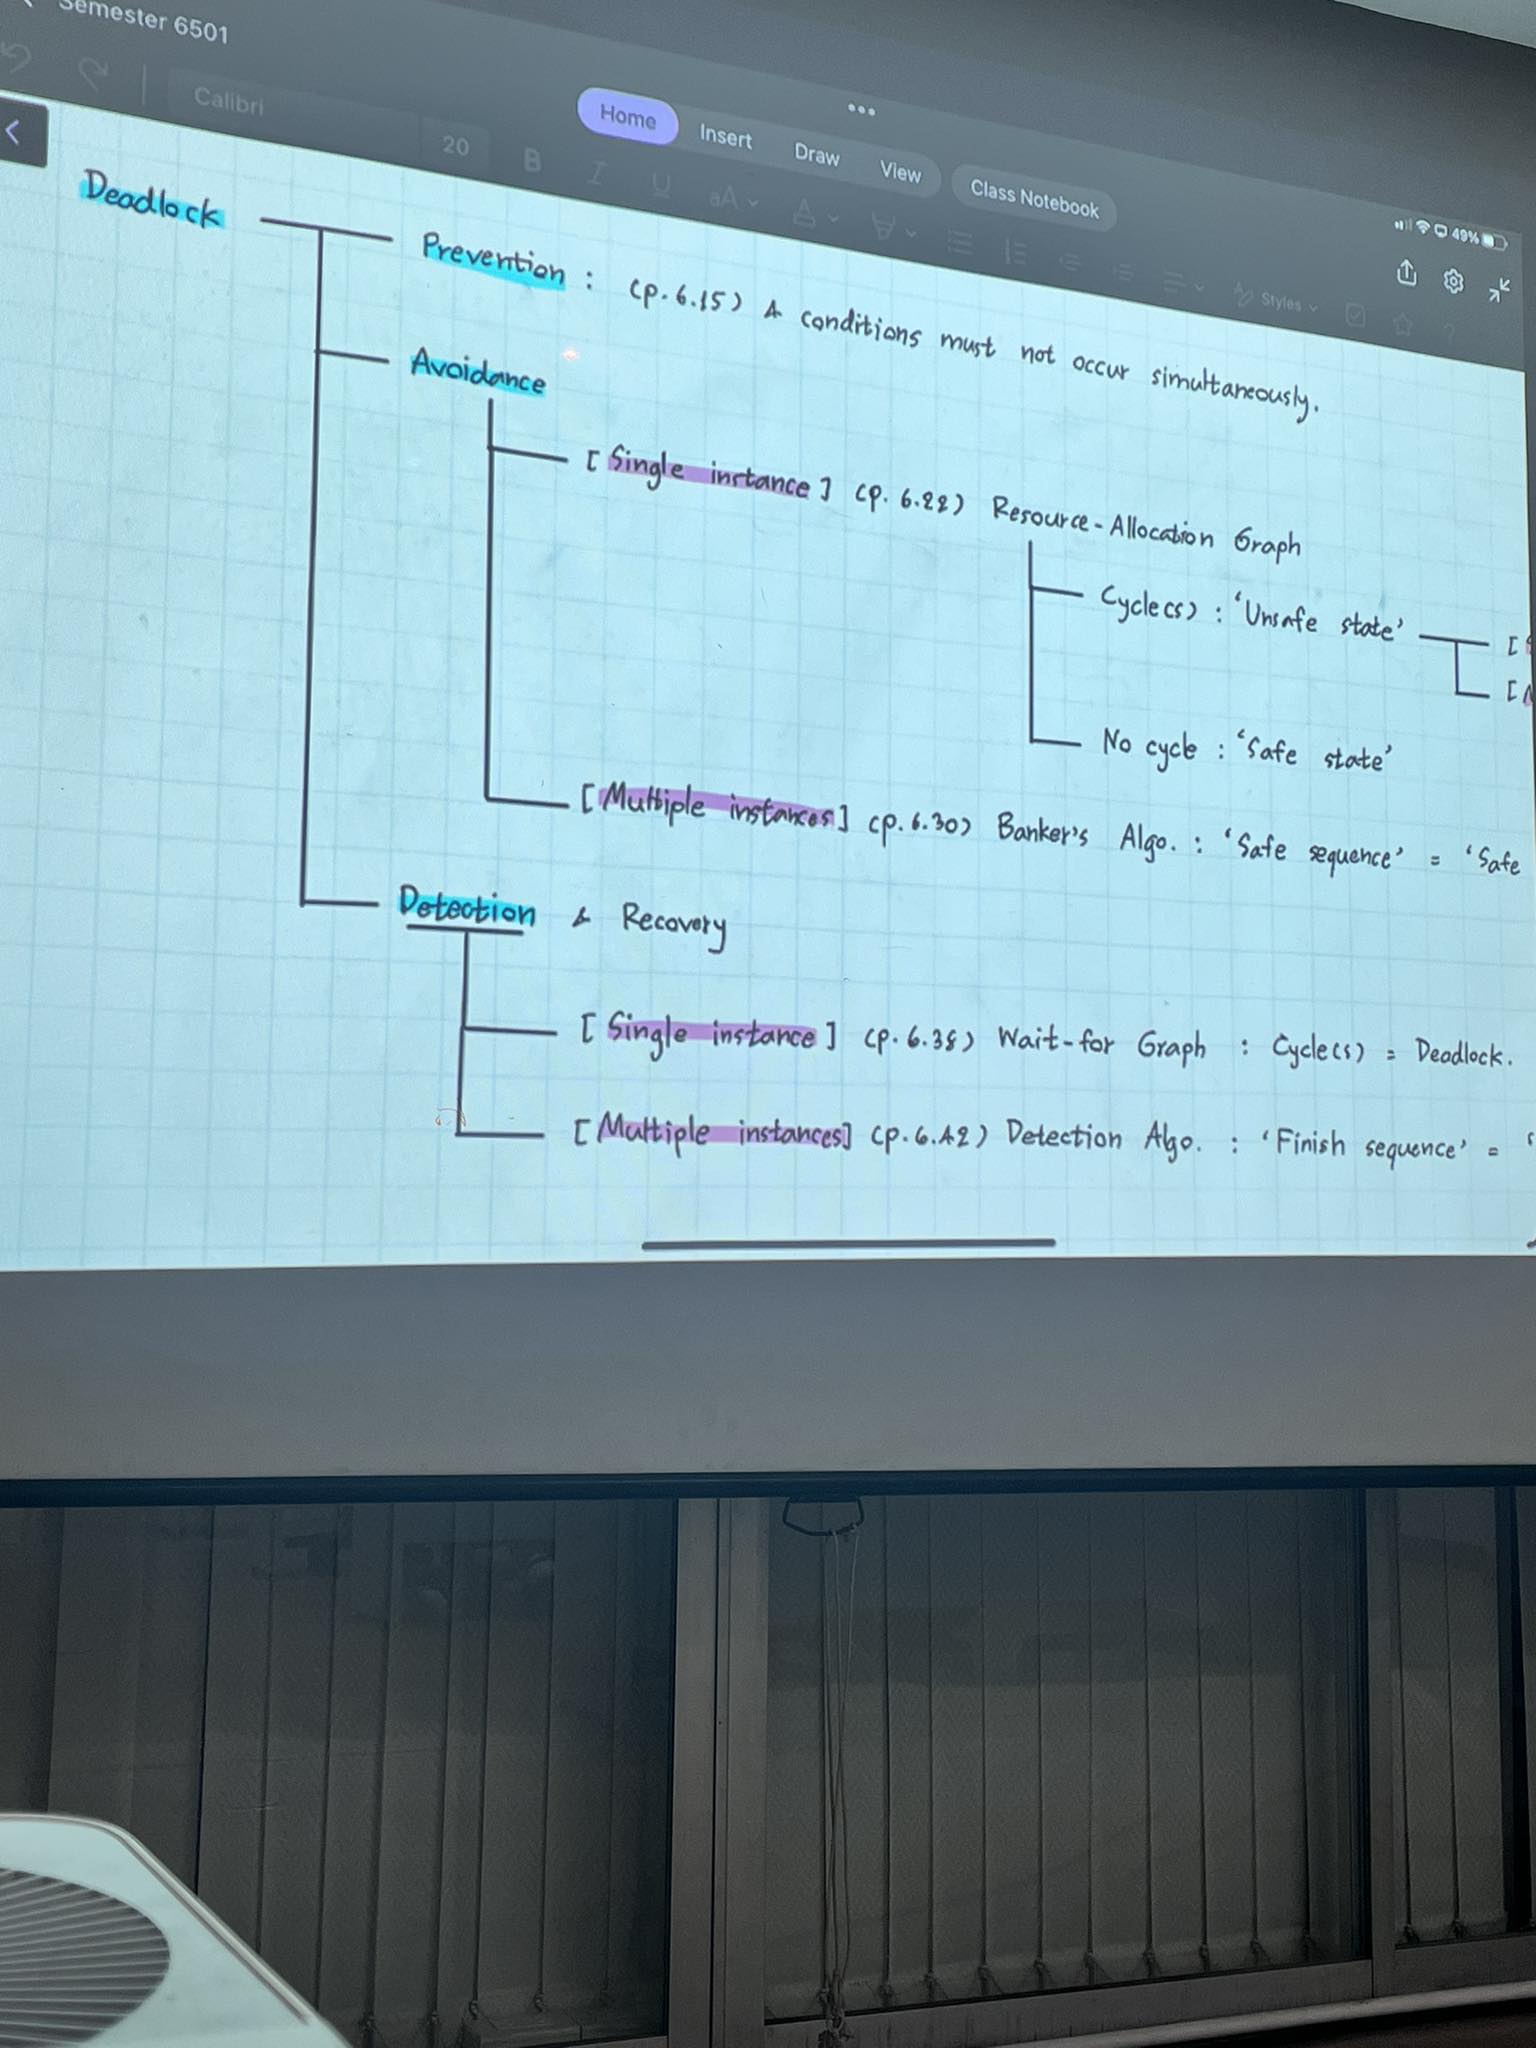 Semester 6501
Calibri
20
B I U aA A
Home Insert Draw View Class Notebook
49%
Styles
Deadlock
Prevention : (p. 6.15) 4 conditions must not occur simultaneously.
Avoidance
[Single instance] (p. 6.22) Resource-Allocation Graph
Cycle(s) : 'Unsafe state'
[
[
No cycle : 'Safe state'
[Multiple instances] (p. 6.30) Banker's Algo. : 'Safe sequence' = 'Safe
Detection & Recovery
[Single instance] (p. 6.38) Wait-for Graph : Cycle(s) = Deadlock.
[Multiple instances] (p. 6.42) Detection Algo. : 'Finish sequence' = '